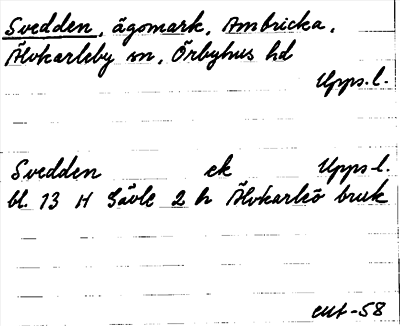 Svedden, ägomark, Ambricka,
Älvkarleby sn, Örbyhus hd
Upps.l.
Svedden ek Upps.l.
bl. 13 H Gävle 2 h Älvkarleö bruk
eut-58